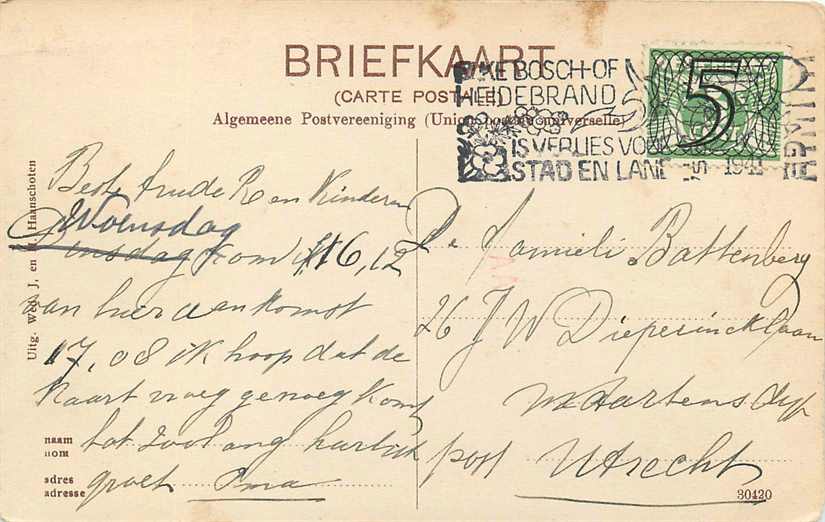 BRIEFKAART
(CARTE POSTALE)
Algemeene Postvereeniging (Union postale universelle)
ELKE BOSCH- OF
HEIDEBRAND
IS VERLIES VOOR
STAD EN LAND
1941
5
Uitg. Wed. J. en Haanschoten
Beste trude R en Kinderen
Woensdag
insdag kom ik 16,12
van hier aankomst
17,08 ik hoop dat de
kaart vroeg genoeg komt
tot zoolang hartelik
groet Oma
naam
nom
adres
adresse
De famili Battenberg
26 J W Dieperincklaan
Maartensdijk
post Utrecht
30420